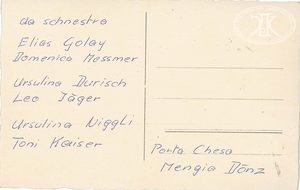 da schnestra
Elias Golay
Domenica Messmer
Ursulina Durisch
Leo Jäger
Ursulina Niggli
Toni Kaiser
Porta Chesa
Mengia Dönz